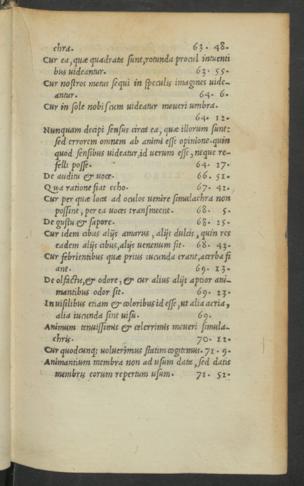 chra. 63. 48.
Cur ea, quæ quadrata sunt, rotunda procul intuenti
bus uideantur. 63. 55.
Cur nostros motus sequi in speculis imagines uide-
antur. 64. 6.
Cur in sole nobiscum uideatur moueri umbra.
64. 12.
Nunquam decipi sensus circa ea, quæ illorum sunt:
sed errorem omnem ab animi esse opinione. quin
quod sensibus uideatur, id uerum esse, neque re-
felli posse. 64. 17.
De auditu & uoce. 66. 51.
Qua ratione fiat echo. 67. 42.
Cur per quæ loca ad oculos uenire simulachra non
possint, per ea uoces transmeent. 68. 5.
De gustu & sapore. 68. 25.
Cur idem cibus alijs amarus, alijs dulcis, quin res
eadem alijs cibus, alijs uenenum sit. 68. 43.
Cur febrientibus quæ prius iucunda erant, acerba fi
ant. 69. 13.
De olfactu, & odore, & cur alius alijs aptior ani-
mantibus odor sit. 69. 23.
In uisilibus etiam & coloribus id esse, ut alia acria,
alia iucunda sint uisu. 69.
Animum tenuissimis et celerrimis moueri simula-
chris. 70. 12.
Cur quodcunq; uoluerimus statim cogitemus. 71. 9.
Animantium membra non ad usum data, sed datis
membris eorum repertum usum. 71. 52.